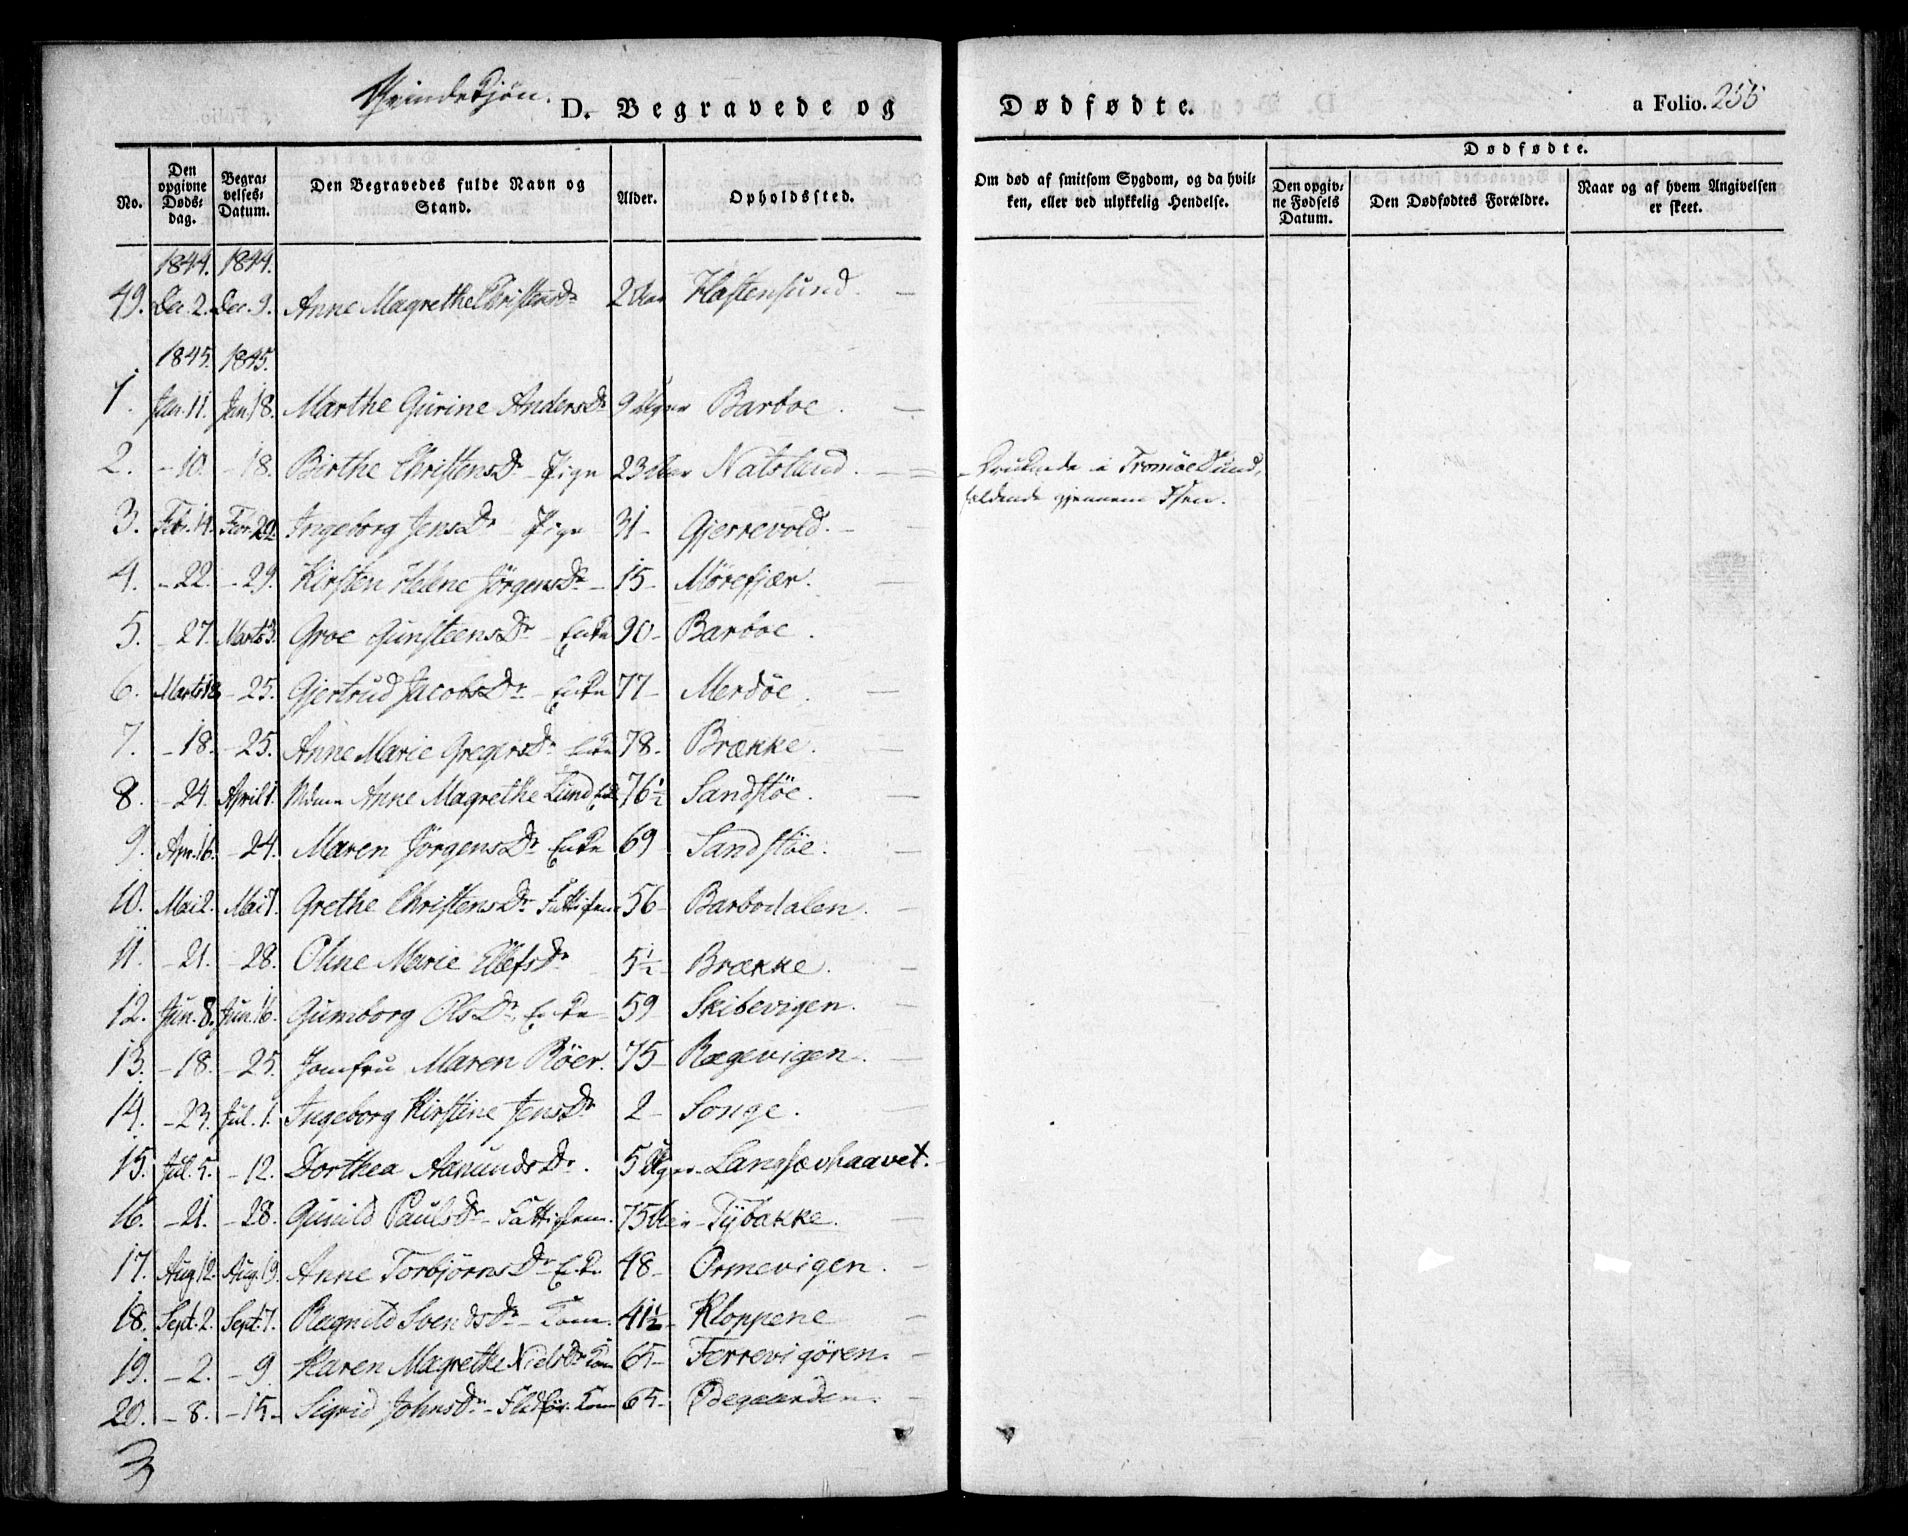 Qvindekjøn. D. Begravede og Dødfødte. a Folio. 255
No. | Den opgivne Døds-dag. | Begra-velses-Datum. | Den Begravedes fulde Navn og Stand. | Alder. | Opholdssted. | Om død af smitsom Sygdom, og da hvil-ken, eller ved ulykkelig Hendelse. | Dødfødte. | Den opgiv-ne Fødsels Datum. | Den Dødfødtes Forældre. | Naar og af hvem Angivelsen er skeet.
1844. 1844.
49. Dec. 2. Dec. 9. Anne Magrethe Christensdr 2 Aar Hastensund. —
1845. 1845.
1. Jan. 11. Jan. 18. Marthe Gurine AndersDr 9 Uger Barboe. —
2. - 10. - 18. Birthe ChristensDr - Pige 23 Aar Natslund. — - Druknede i TromøeSund,
faldende gjennem Isen.
3. Febr. 14. Febr. 20. Ingeborg JensDr - Pige 31 - Gjerrevold. —
4. - 22. - 29. Kirsten Helene JörgensDr - 15 - Mörefjær. —
5. - 27. Marts 3. Groe GunsteensDr - Enke 90 - Barboe.
6. Marts 18 - 25. Gjertrud JacobsDr - Enke 77 - Merdöe. —
7. - 18. - 25. Anne Marie GregersDr Enke 78. Brække. —
8. - 24. April 1. Mdme Anne Magrethe Lund Enke 76½ Sandstöe. —
9. Apr. 16. - 24. Maren JörgensDr Enke 69 Sandstöe. —
10. Mai 2. Mai 7. Grethe ChristensDr Fattiglem 56 Barbodalen. —
11. - 21. - 28. Oline Marie EllefsDr 5½ Brække. —
12. Jun. 8. Jun. 16. Gunborg OlsDr, Enke 59 Skibevigen. —
13. - 18. - 25. Jomfru Maren Röer. 75 Rægevigen. —
14. - 23. Jul. 1. Ingeborg Kirstine JensDr 2 - Songe. —
15. Jul. 5. - 12. Dorthea AanundsDr. 5 Uger Langsævhaavet. —
16. - 21. - 28. Gunild PaulsDr - Fattiglem. 75 Aar - Tÿbakke. —
17. Aug 12. Aug. 19. Anne TorbjörnsDr Enke 48 - Ormevigen. —
18. Sept. 2. Sept. 7. Ragnild SvendsDr - Kone. 41½ - Kloppene —
19. - 2. - 9. Karen Magrethe NielsDr Kone 65 - Færrevigören. —
20. - 8. - 15 - Sigrid JohnsDr - Kone 65 - Ödegaarden. —